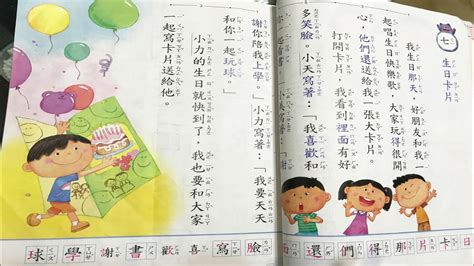 七 生日卡片
我生日那天，好朋友和我一
起唱生日快樂歌，大家玩得很開
心。他們還送給我一張大卡片。
打開卡片，我看到裡面有好
多笑臉。小天寫著：「我喜歡和
謝你陪我上學。」小力寫著：「我要天天
和你一起玩球。」
小力的生日就快到了，我也要和大家
一起寫卡片送給他。
日卡片那得們還面
臉寫喜歡書謝學球